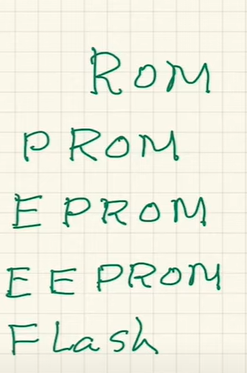 ROM
PROM
EPROM
EEPROM
Flash